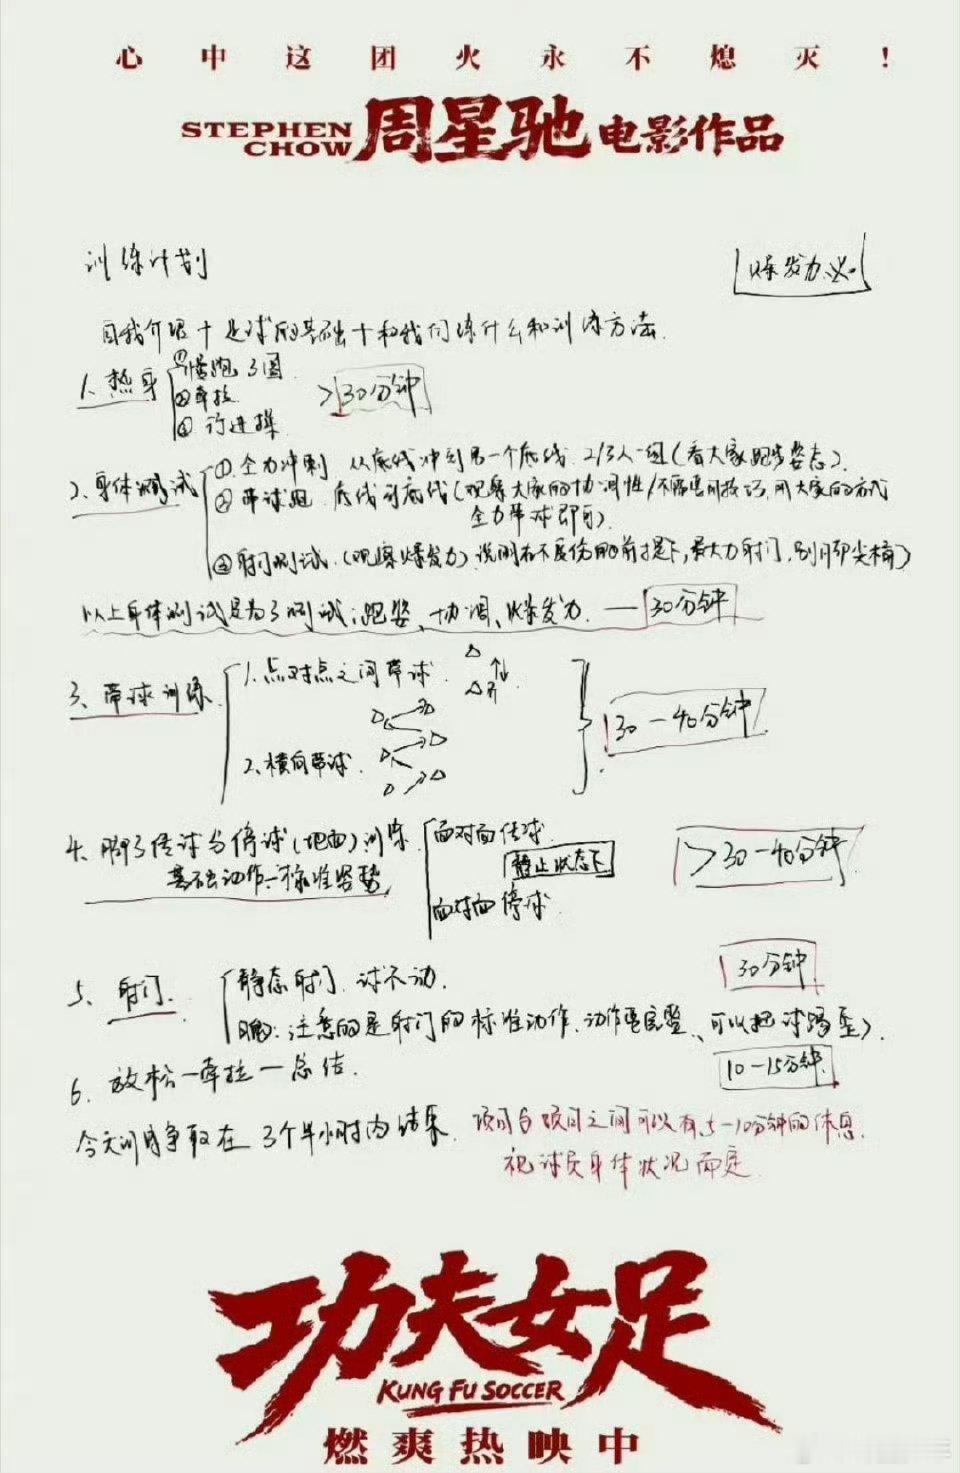 心中这团火永不熄灭！
STEPHEN CHOW 周星驰 电影作品
训练计划
爆发力
自我介绍＋足球的基础＋和我们练什么和训练方法.
1、热身 ①慢跑3圈
②牵拉
③行进操
>30分钟
2、身体测试 ①.全力冲刺 从底线冲到另一个底线. 2/3人一组(看大家跑步姿态).
②带球跑. 底线到底线(观察大家的协调性/不需要用技巧,用大家的方式
全力带球即可).
③射门测试.(观察爆发力) 说明在不受伤的前提下,最大力射门,别用脚尖捅)
以上身体测试是为了测试:跑姿、协调、爆发力. — 30分钟
3、带球训练 1.点对点之间带球.
2、横向带球.
30－40分钟
4、脚弓传球与停球(地面)训练 面对面传球
基础动作、标准姿势 静止状态下
面对面停球.
>30－40分钟
5、射门. 静态射门.球不动. 30分钟
注意的是射门的标准动作,动作要完整、可以把球踢歪).
6.放松－牵拉－总结. 10－15分钟
今天训练争取在3个半小时内结束. 项目与项目之间可以有5-10分钟的休息.
视球员身体状况而定
功夫女足
KUNG FU SOCCER
燃爽热映中